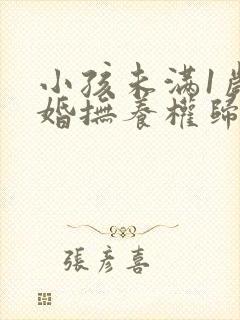 小孩未满1歲
婚撫養權歸
張彦喜